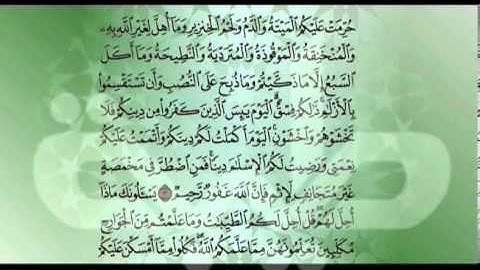 حُرِّمَتْ عَلَيْكُمُ الْمَيْتَةُ وَالدَّمُ وَلَحْمُ الْخِنزِيرِ وَمَا أُهِلَّ لِغَيْرِ اللَّهِ بِهِ
وَالْمُنْخَنِقَةُ وَالْمَوْقُوذَةُ وَالْمُتَرَدِّيَةُ وَالنَّطِيحَةُ وَمَا أَكَلَ
السَّبُعُ إِلَّا مَا ذَكَّيْتُمْ وَمَا ذُبِحَ عَلَى النُّصُبِ وَأَن تَسْتَقْسِمُوا
بِالْأَزْلَامِ ذَٰلِكُمْ فِسْقٌ الْيَوْمَ يَئِسَ الَّذِينَ كَفَرُوا مِن دِينِكُمْ فَلَا
تَخْشَوْهُمْ وَاخْشَوْنِ الْيَوْمَ أَكْمَلْتُ لَكُمْ دِينَكُمْ وَأَتْمَمْتُ عَلَيْكُمْ
نِعْمَتِي وَرَضِيتُ لَكُمُ الْإِسْلَامَ دِينًا فَمَنِ اضْطُرَّ فِي مَخْمَصَةٍ
غَيْرَ مُتَجَانِفٍ لِّإِثْمٍ فَإِنَّ اللَّهَ غَفُورٌ رَّحِيمٌ ٣ يَسْأَلُونَكَ مَاذَا
أُحِلَّ لَهُمْ قُلْ أُحِلَّ لَكُمُ الطَّيِّبَاتُ وَمَا عَلَّمْتُم مِّنَ الْجَوَارِحِ
مُكَلِّبِينَ تُعَلِّمُونَهُنَّ مِمَّا عَلَّمَكُمُ اللَّهُ فَكُلُوا مِمَّا أَمْسَكْنَ عَلَيْكُمْ